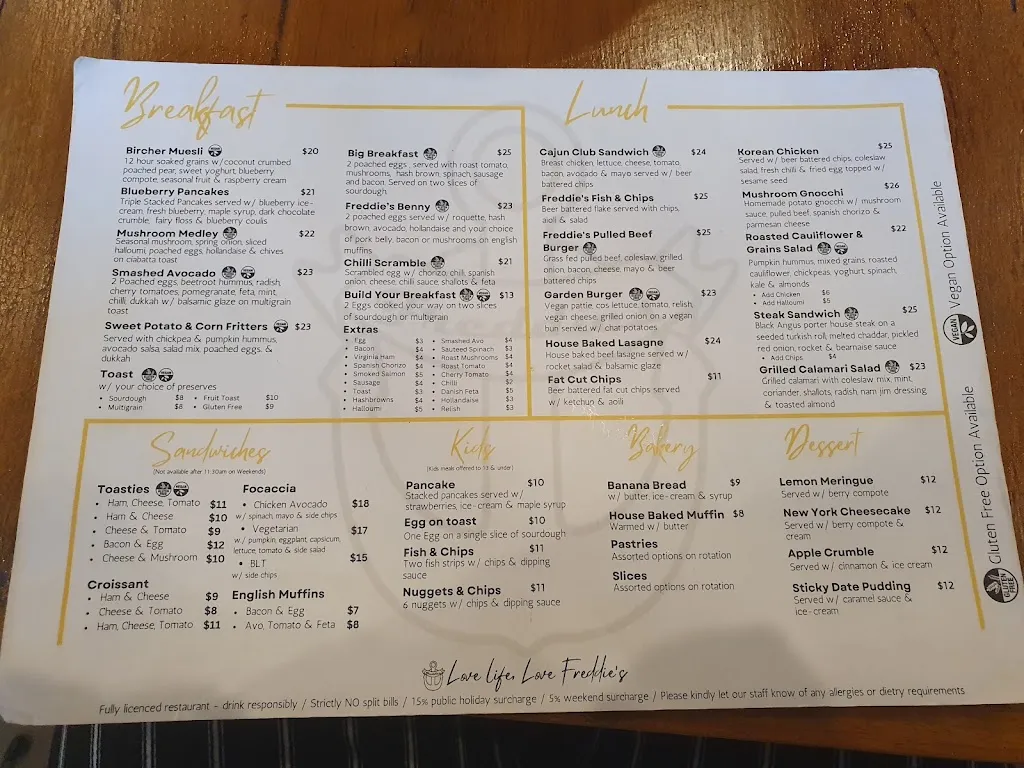 Breakfast
Bircher Muesli $20
12 hour soaked grains w/coconut crumbed
poached pear, sweet yoghurt, blueberry
compote, seasonal fruit & raspberry cream
Blueberry Pancakes $21
Triple Stacked Pancakes served w/ blueberry ice-
cream, fresh blueberry, maple syrup, dark chocolate
crumble, fairy floss & blueberry coulis
Mushroom Medley $22
Seasonal mushroom, spring onion, sliced
halloumi, poached eggs, hollandaise & chives
on ciabatta toast
Smashed Avocado $23
2 Poached eggs, beetroot hummus, radish,
cherry tomatoes, pomegranate, feta, mint,
chilli, dukkah w/ balsamic glaze on multigrain
toast
Sweet Potato & Corn Fritters $23
Served with chickpea & pumpkin hummus,
avocado salsa, salad mix, poached eggs, &
dukkah
Toast
w/ your choice of preserves
• Sourdough $8 • Fruit Toast $10
• Multigrain $8 • Gluten Free $9
Big Breakfast $25
2 poached eggs , served with roast tomato,
mushrooms, hash brown, spinach, sausage
and bacon. Served on two slices of
sourdough.
Freddie's Benny $23
2 poached eggs served w/ roquette, hash
brown, avocado, hollandaise and your choice
of pork belly, bacon or mushrooms on english
muffins
Chilli Scramble $21
Scrambled egg w/ chorizo, chili, spanish
onion, cheese, chilli sauce, shallots & feta
Build Your Breakfast $13
2 Eggs cooked your way on two slices
of sourdough or multigrain
Extras
• Egg $3 • Smashed Avo $4
• Bacon $4 • Sauteed Spinach $3
• Virginia Ham $4 • Roast Mushrooms $4
• Spanish Chorizo $4 • Roast Tomato $4
• Smoked Salmon $5 • Cherry Tomato $4
• Sausage $4 • Chilli $2
• Toast $3 • Danish Feta $5
• Hashbrowns $4 • Hollandaise $3
• Halloumi $5 • Relish $3
Lunch
Cajun Club Sandwich $24
Breast chicken, lettuce, cheese, tomato,
bacon, avocado & mayo served w/ beer
battered chips
Freddie's Fish & Chips $25
Beer battered flake served with chips,
aioli & salad
Freddie's Pulled Beef $25
Burger
Grass fed pulled beef, coleslaw, grilled
onion, bacon, cheese, mayo & beer
battered chips
Garden Burger $23
Vegan pattie, cos lettuce, tomato, relish,
vegan cheese, grilled onion on a vegan
bun served w/ chat potatoes
House Baked Lasagne $24
House baked beef lasagne served w/
rocket salad & balsamic glaze
Fat Cut Chips $11
Beer battered fat cut chips served
w/ ketchup & aoili
Korean Chicken $25
Served w/ beer battered chips, coleslaw
salad, fresh chilli & fried egg topped w/
sesame seed
Mushroom Gnocchi $26
Homemade potato gnocchi w/ mushroom
sauce, pulled beef, spanish chorizo &
parmesan cheese
Roasted Cauliflower & $22
Grains Salad
Pumpkin hummus, mixed grains, roasted
cauliflower, chickpeas, yoghurt, spinach,
kale & almonds
• Add Chicken $6
• Add Halloumi $5
Steak Sandwich $25
Black Angus porter house steak on a
seeded turkish roll, melted chaddar, pickled
red onion, rocket & bearnaise sauce
• Add Chips $4
Grilled Calamari Salad $23
Grilled calamari with coleslaw mix, mint,
coriander, shallots, radish, nam jim dressing
& toasted almond
VEGAN Vegan Option Available
GLUTEN FREE Gluten Free Option Available
Sandwiches
(Not available after 11:30am on Weekends)
Toasties
• Ham, Cheese, Tomato $11
• Ham & Cheese $10
• Cheese & Tomato $9
• Bacon & Egg $12
• Cheese & Mushroom $10
Croissant
• Ham & Cheese $9
• Cheese & Tomato $8
• Ham, Cheese, Tomato $11
Focaccia
• Chicken Avocado $18
w/ spinach, mayo & side chips
• Vegetarian $17
w/ pumpkin, eggplant, capsicum,
lettuce, tomato & side salad
• BLT $15
w/ side chips
English Muffins
• Bacon & Egg $7
• Avo, Tomato & Feta $8
Kids
(Kids meals offered to 13 & under)
Pancake $10
Stacked pancakes served w/
strawberries, ice-cream & maple syrup
Egg on toast $10
One Egg on a single slice of sourdough
Fish & Chips $11
Two fish strips w/ chips & dipping
sauce
Nuggets & Chips $11
6 nuggets w/ chips & dipping sauce
Bakery
Banana Bread $9
w/ butter, ice-cream & syrup
House Baked Muffin $8
Warmed w/ butter
Pastries
Assorted options on rotation
Slices
Assorted options on rotation
Dessert
Lemon Meringue $12
Served w/ berry compote
New York Cheesecake $12
Served w/ berry compote &
cream
Apple Crumble $12
Served w/ cinnamon & ice cream
Sticky Date Pudding $12
Served w/ caramel sauce &
ice-cream
Love life, Love Freddie's
Fully licenced restaurant - drink responsibly / Strictly NO split bills / 15% public holiday surcharge / 5% weekend surcharge / Please kindly let our staff know of any allergies or dietry requirements